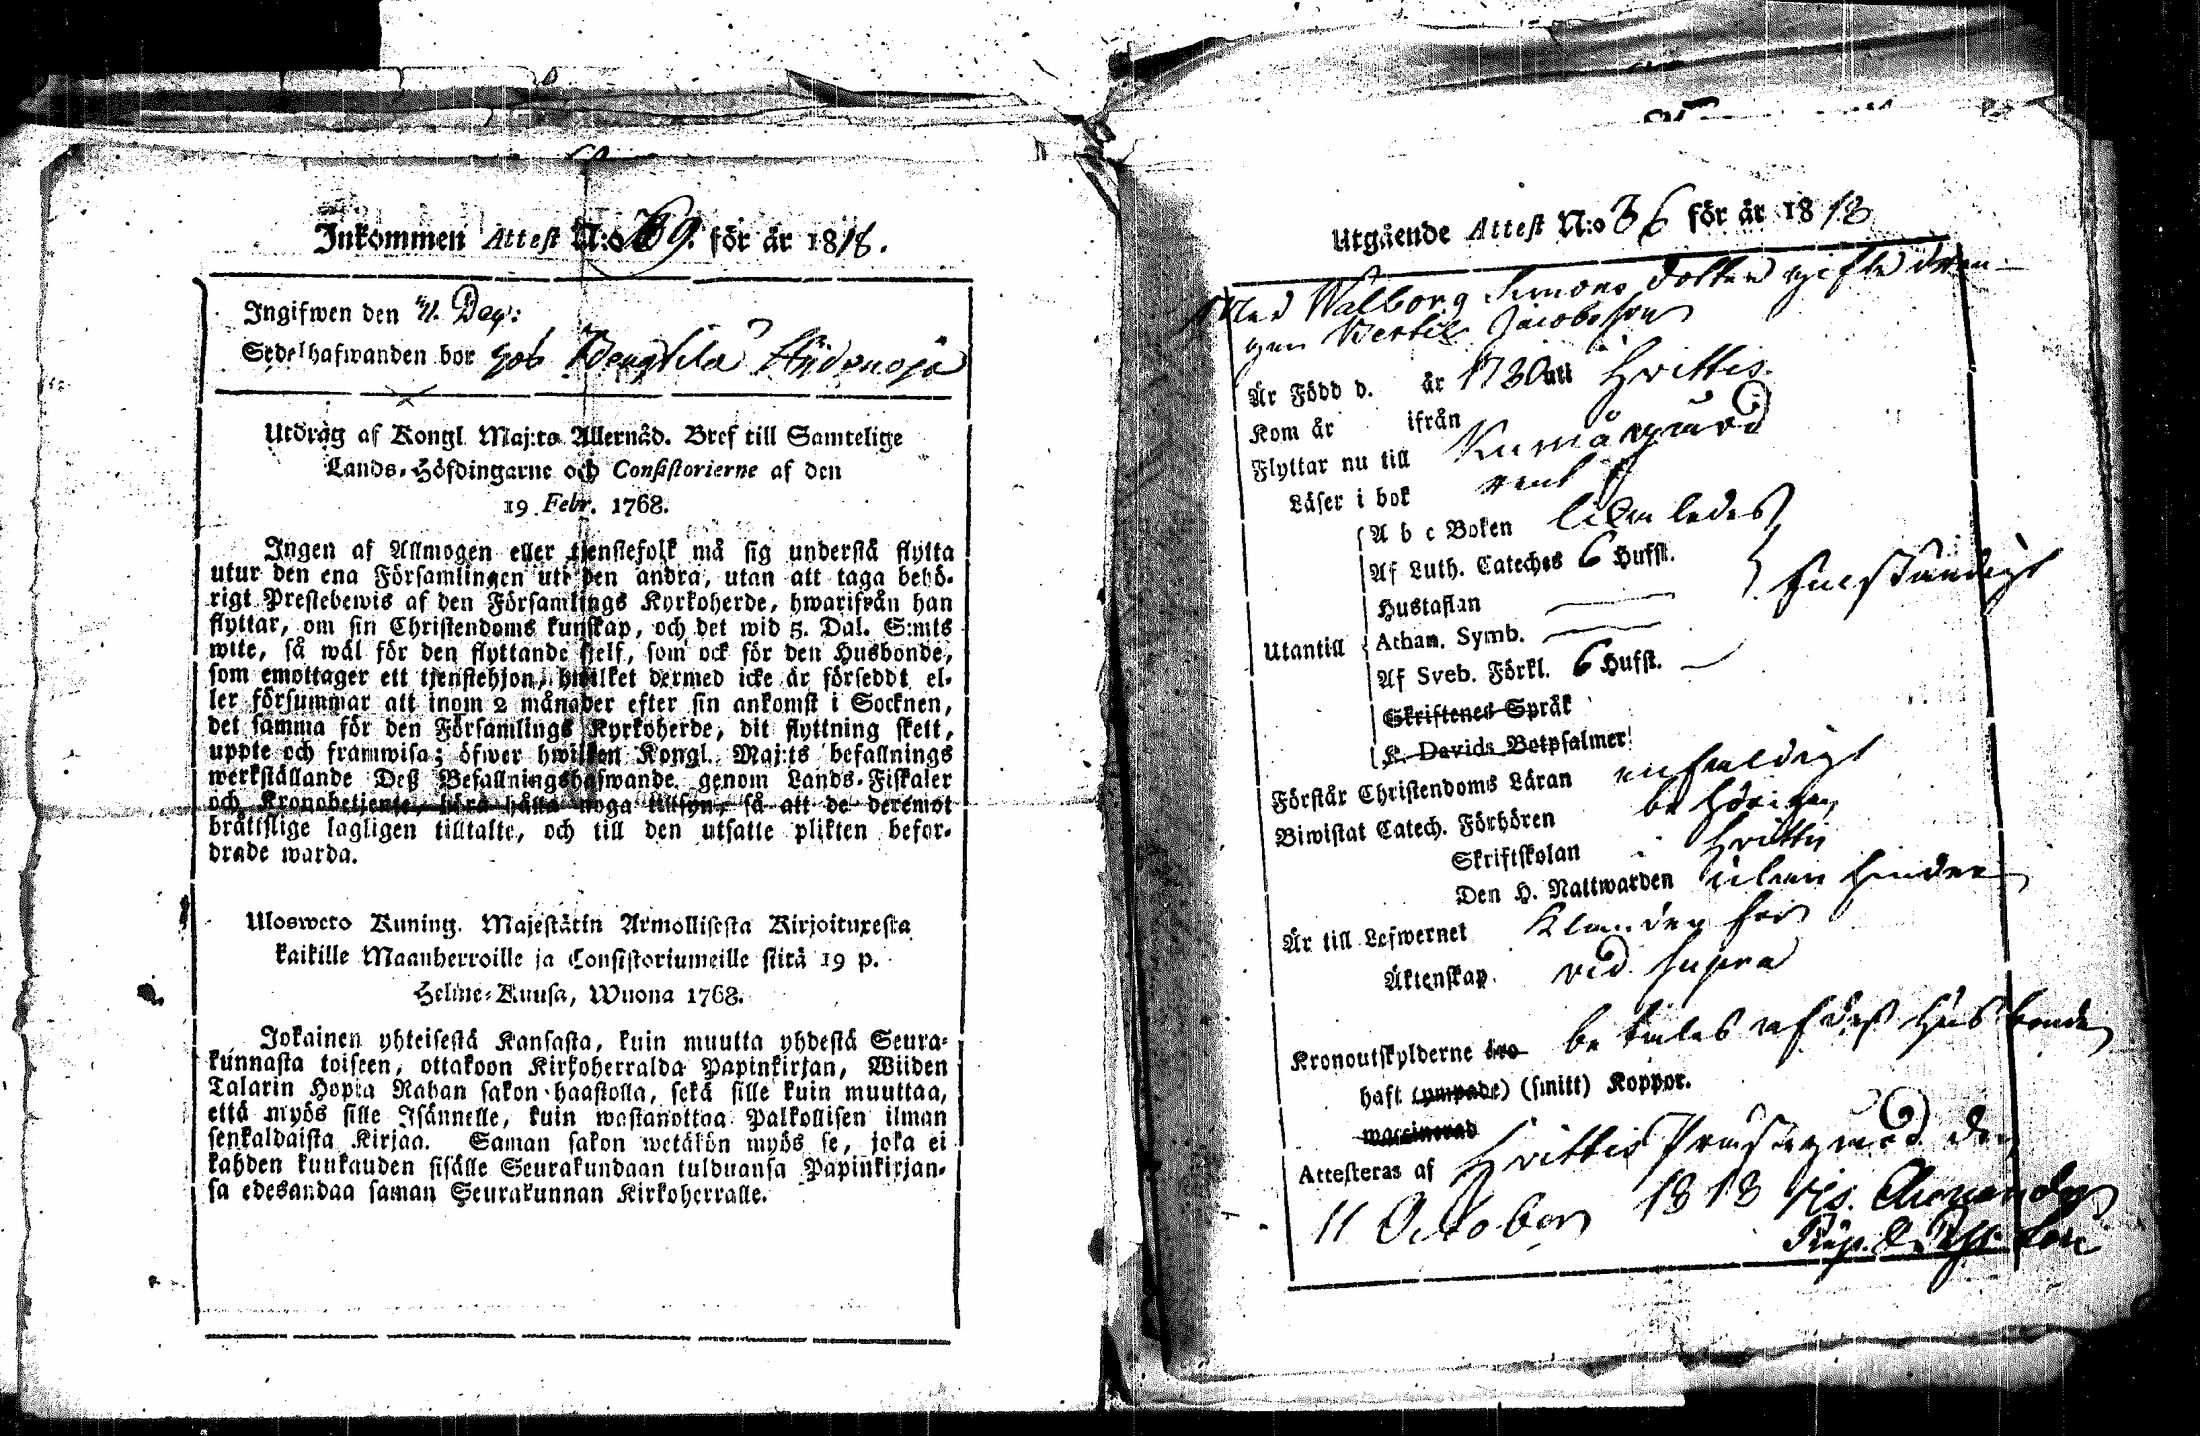 Inkommen Attest N:o 69. för år 1818.
Ingifwen den
Sedelhafwanden bor hos
Utdrag af Kongl. Maj:ts Allernåd. Bref till Samtelige
Lands-Höfdingarne och Consistorierne af den
19 Febr. 1768.
Ingen af Allmogen eller tjenstefolk må sig understå flytta
utur den ena Församlingen uti den andra, utan att taga behö-
rigt Prestebewis af den Församlings Kyrkoherde, hwarifrån han
flyttar, om sin Christendoms kunskap, och det wid 5. Dal. S:mts
wite, så wäl för den flyttande sjelf, som ock för den Husbonde,
som emottager ett tjenstehjon, hwilket dermed icke är förseddt el-
ler försummar att inom 2 månader efter sin ankomst i Socknen,
det samma för den Församlings Kyrkoherde, dit flyttning skett,
uppte och framwisa; öfwer hwilken Kongl. Maj:ts befallnings
werkställande Deß Befallningshafwande genom Lands-Fiskaler
och Kronobetjente, böra hålla noga tillsyn, så att de deremot
bråttslige lagligen tilltalte, och till den utsatte plikten befor-
drade warda.
Ulosweto Kuning. Majestätin Armollisesta Kirjoituxesta
kaikille Maanherroille ja Consistoriumeille siitä 19 p.
Helme-Kuusa, Wuona 1768.
Jokainen yhteisestä Kansasta, kuin muutta yhdestä Seura-
kunnasta toiseen, ottakoon Kirkoherralda Papinkirjan, Wiiden
Talarin Hopia Rahan sakon haastolla, sekä sille kuin muuttaa,
että myös sille Isännelle, kuin wastanottaa Palkollisen ilman
senkaldaista Kirjaa. Saman sakon wetäkön myös se, joka ei
kahden kuukauden sisälle Seurakundaan tulduansa Papinkirjan-
sa edesandaa saman Seurakunnan Kirkoherralle.
Utgående Attest N:o 36 för år 1818
Walborg Simons dotter gifte dren-
gen Bertil Jacobsson
Är Född d. år 1780 uti Hvittis.
Kom år ifrån
Flyttar nu till Kumogård
Läser i bok rent
A b c Boken likaledes
Af Luth. Cateches 6 Hufst.
Hustaflan
Utantill Athan. Symb.
Af Sveb. Förkl. 6 Hufst.
Skriftenes Språk
K. Davids Botpsalmer
Förstår Christendoms Läran enfaldigt
Biwistat Catech. Förhören behörigen
Skriftskolan i Hvittis
Den H. Nattwarden utan hinder
Är till Lefwernet Klanderfri
Äktenskap. vid. supra
Kronoutskylderne äro betales af deß Husbonde
haft (ympade) (smitt) Koppor.
waccinerad
Attesteras af Hvittis Prustegård den
11 October 1818